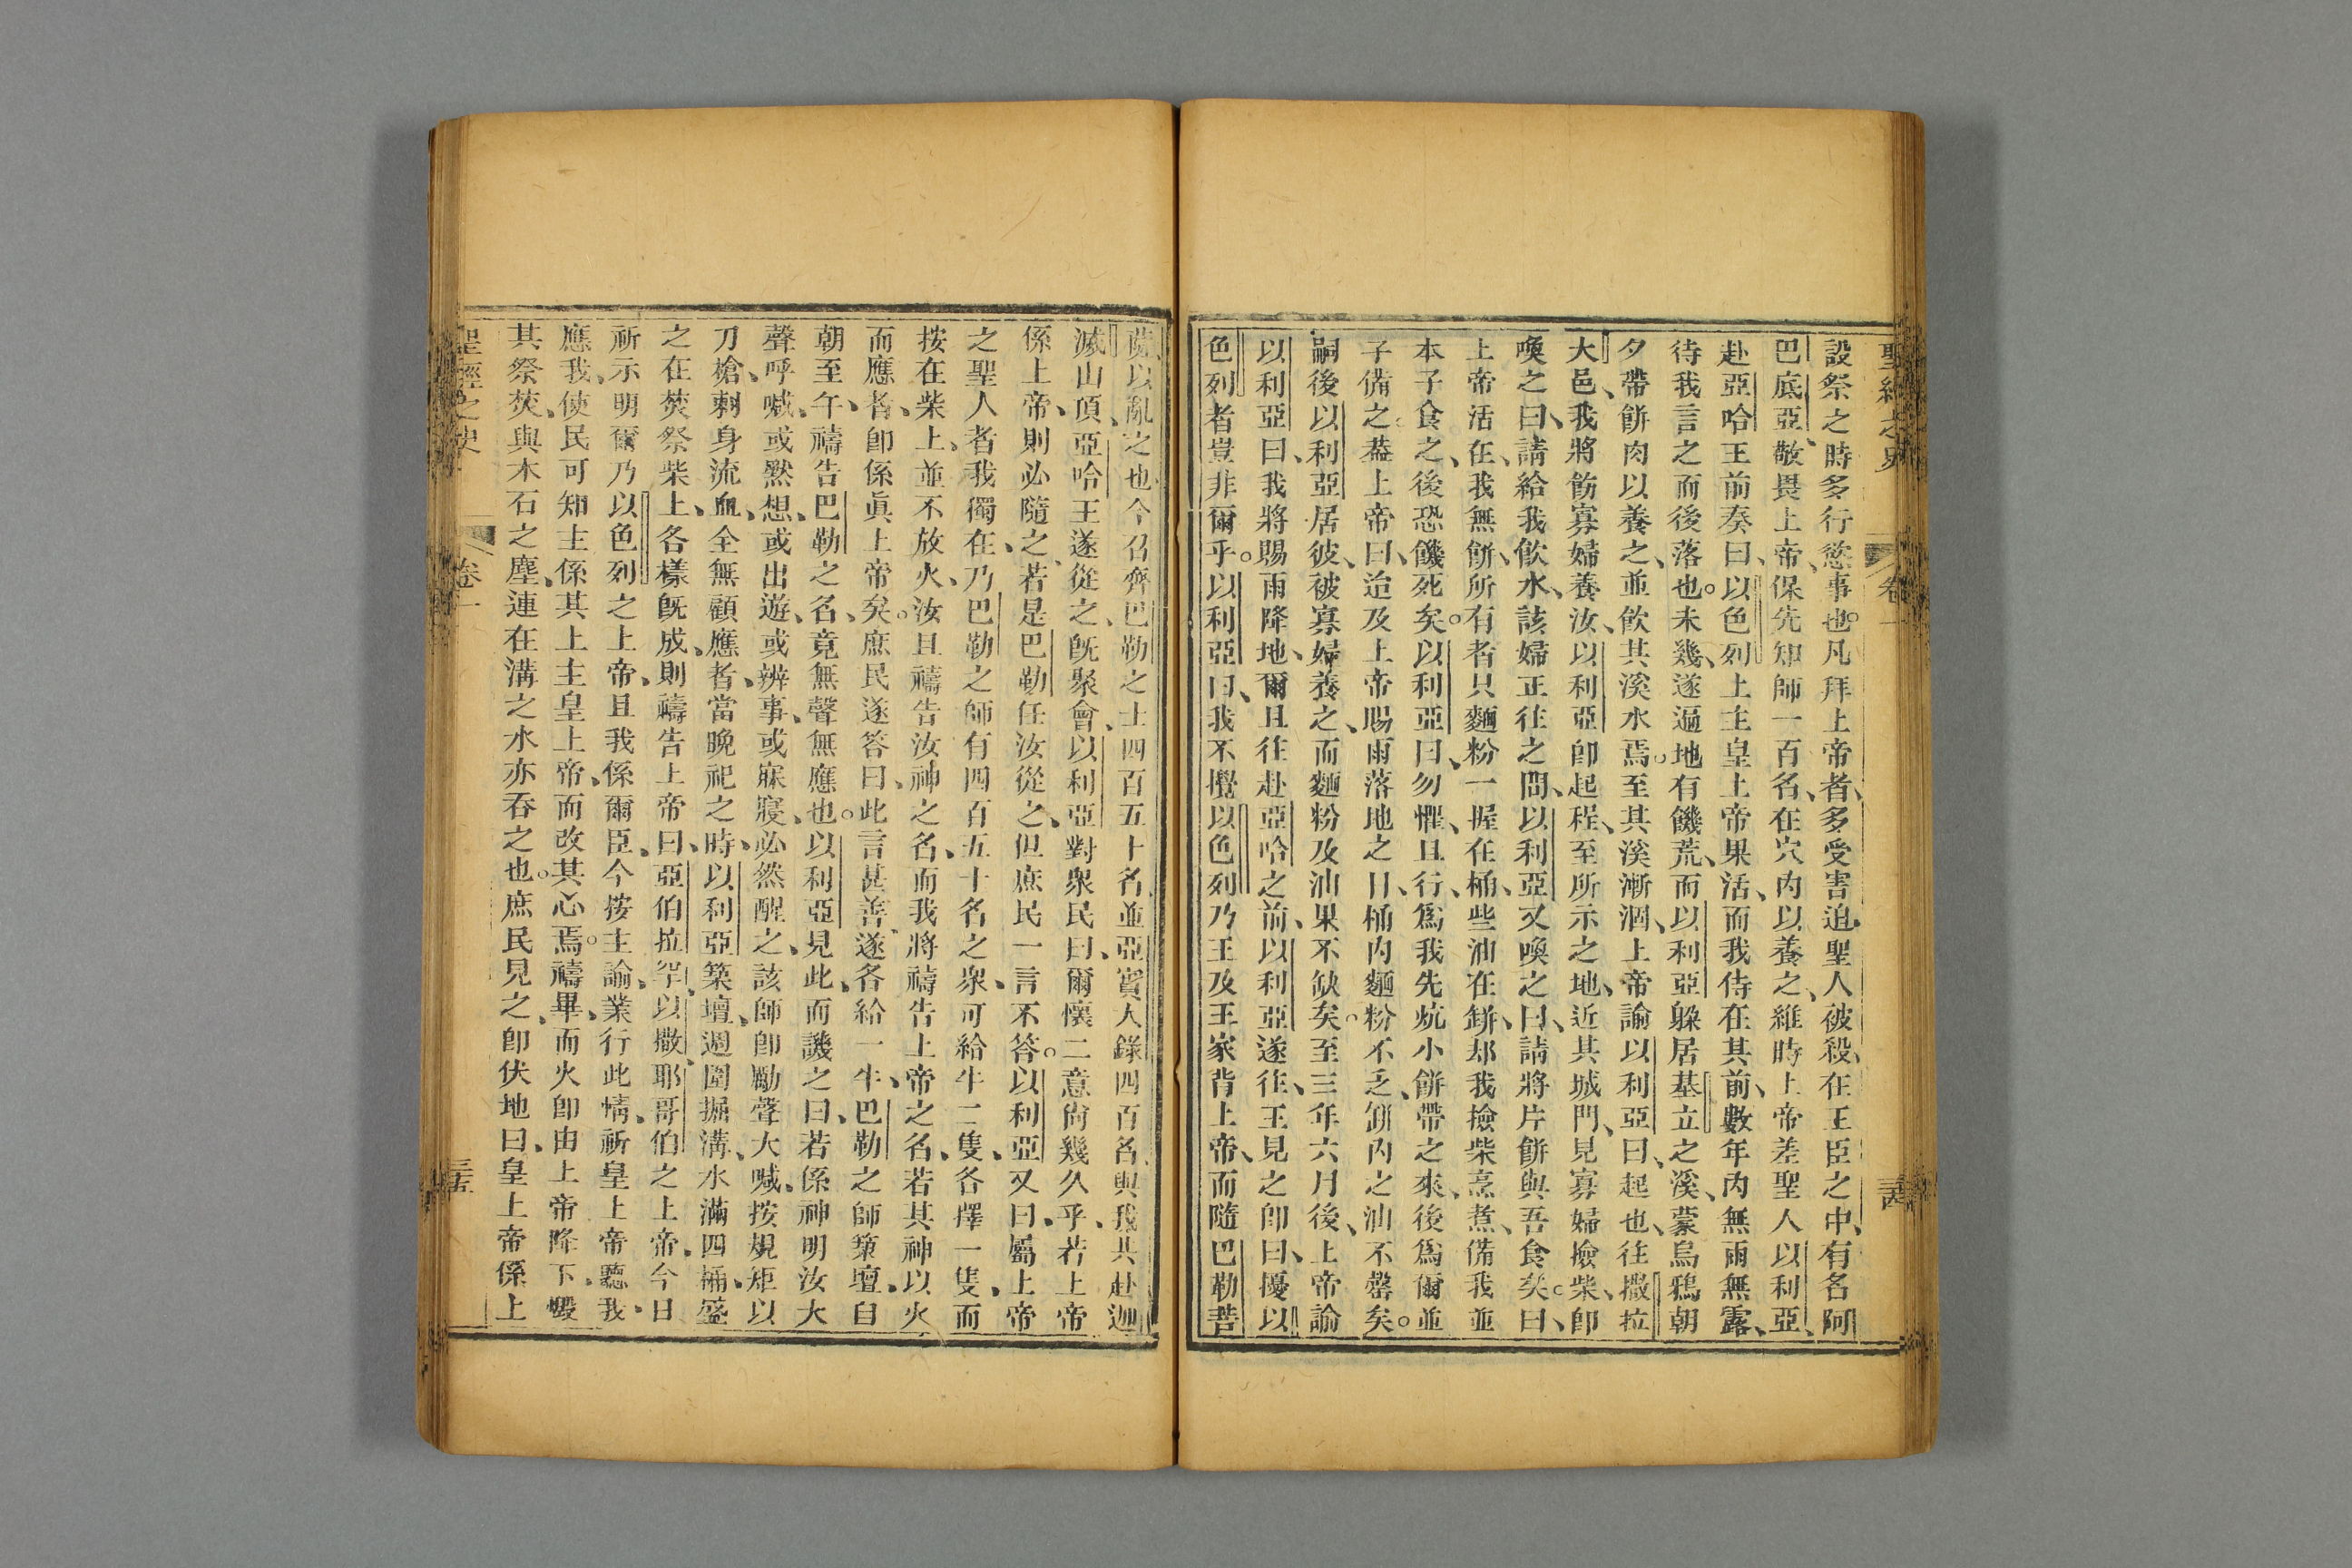 聖經之史 卷一 三十四
設祭之時多行慾事也。凡拜上帝者、多受害迫、聖人被殺、在王臣之中、有名阿
巴底亞、敬畏上帝、保先知師一百名、在穴內以養之、維時上帝差聖人以利亞、
赴亞哈王前奏曰、以色列上主皇上帝果活、而我侍在其前、數年內無雨無露、
待我言之而後落也。未幾、遂遍地有饑荒、而以利亞躲居基立之溪、蒙烏鴉朝
夕帶餅肉以養之、並飲其溪水焉。至其溪漸涸、上帝諭以利亞曰、起也、往撒拉
大邑、我將飭寡婦養汝、以利亞即起程、至所示之地、近其城門、見寡婦撿柴、即
喚之曰、請給我飲水、該婦正往之間、以利亞又喚之曰、請將片餅與吾食矣。曰、
上帝活在、我無餅、所有者只麵粉一握在桶、些油在缾、却我撿柴烹煮、備我並
本子食之、後恐饑死矣。以利亞曰、勿懼、且行、為我先炕小餅帶之來、後為爾並
子備之。蓋上帝曰、迨及上帝賜雨落地之日、桶內麵粉不乏、缾內之油不罄矣。
嗣後以利亞居彼、被寡婦養之、而麵粉及油果不缺矣。至三年六月後、上帝諭
以利亞曰、我將賜雨降地、爾且往赴亞哈之前、以利亞遂往、王見之即曰、擾以
色列者豈非爾乎。以利亞曰、我不攪以色列、乃王及王家背上帝、而隨巴勒菩
薩以亂之也、今召齊巴勒之士四百五十名、並亞實人錄四百名、與我共赴迦
滅山頂、亞哈王遂從之、既聚會、以利亞對衆民曰、爾懷二意尙幾久乎、若上帝
係上帝、則必隨之、若是巴勒任汝從之、但庶民一言不答。以利亞又曰、屬上帝
之聖人者我獨在、乃巴勒之師有四百五十名之衆、可給牛二隻、各擇一隻、而
按在柴上、並不放火、汝且禱告汝神之名、而我將禱告上帝之名、若其神以火
而應者、即係眞上帝矣。庶民遂答曰、此言甚善、遂各給一牛、巴勒之師築壇、自
朝至午、禱告巴勒之名、竟無聲無應也。以利亞見此、而譏之曰、若係神明汝大
聲呼喊、或默想、或出遊、或辨事、或寐寢、必然醒之、該師即勵聲大喊、按規矩以
刀槍、刺身流血、全無顧應者、當晚祀之時、以利亞築壇、週圍掘溝、水滿四桶、盛
之在焚祭柴上、各樣既成、則禱告上帝曰、亞伯拉罕、以撒、耶哥伯之上帝、今日
祈示明爾乃以色列之上帝、且我係爾臣、今按主諭、業行此情、祈皇上帝聽我、
應我、使民可知主係其上主皇上帝、而改其心焉。禱畢、而火即由上帝降下、燬
其祭焚、與木石之塵、連在溝之水亦吞之也。庶民見之、即伏地曰、皇上帝係上
聖經之史 卷一 三十五